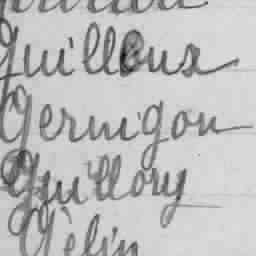 Guilloux
Gernigon
Guillory
Gélin